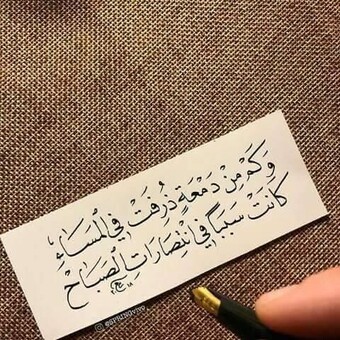 وَكَمْ مِنْ دَمْعَةٍ ذُرِفَتْ فِي الْمَسَاءِ،
كَانَتْ سَبَبًا فِي انْتِصَارَاتِ الصَّبَاحْ